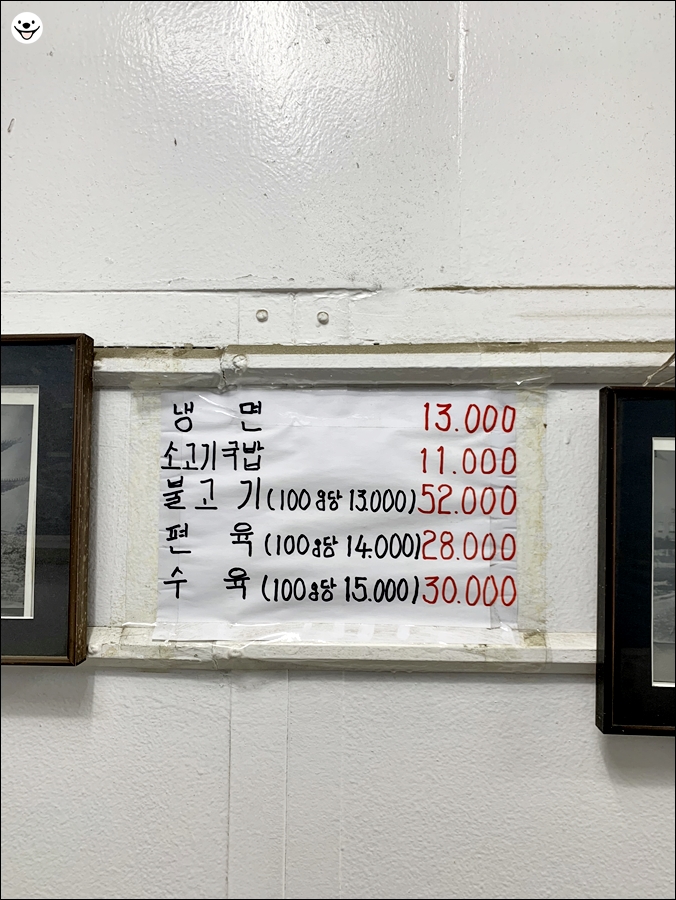 냉 면 13.000
소고기국밥 11.000
불 고 기 (100g당 13.000) 52.000
편 육 (100g당 14.000) 28.000
수 육 (100g당 15.000) 30.000